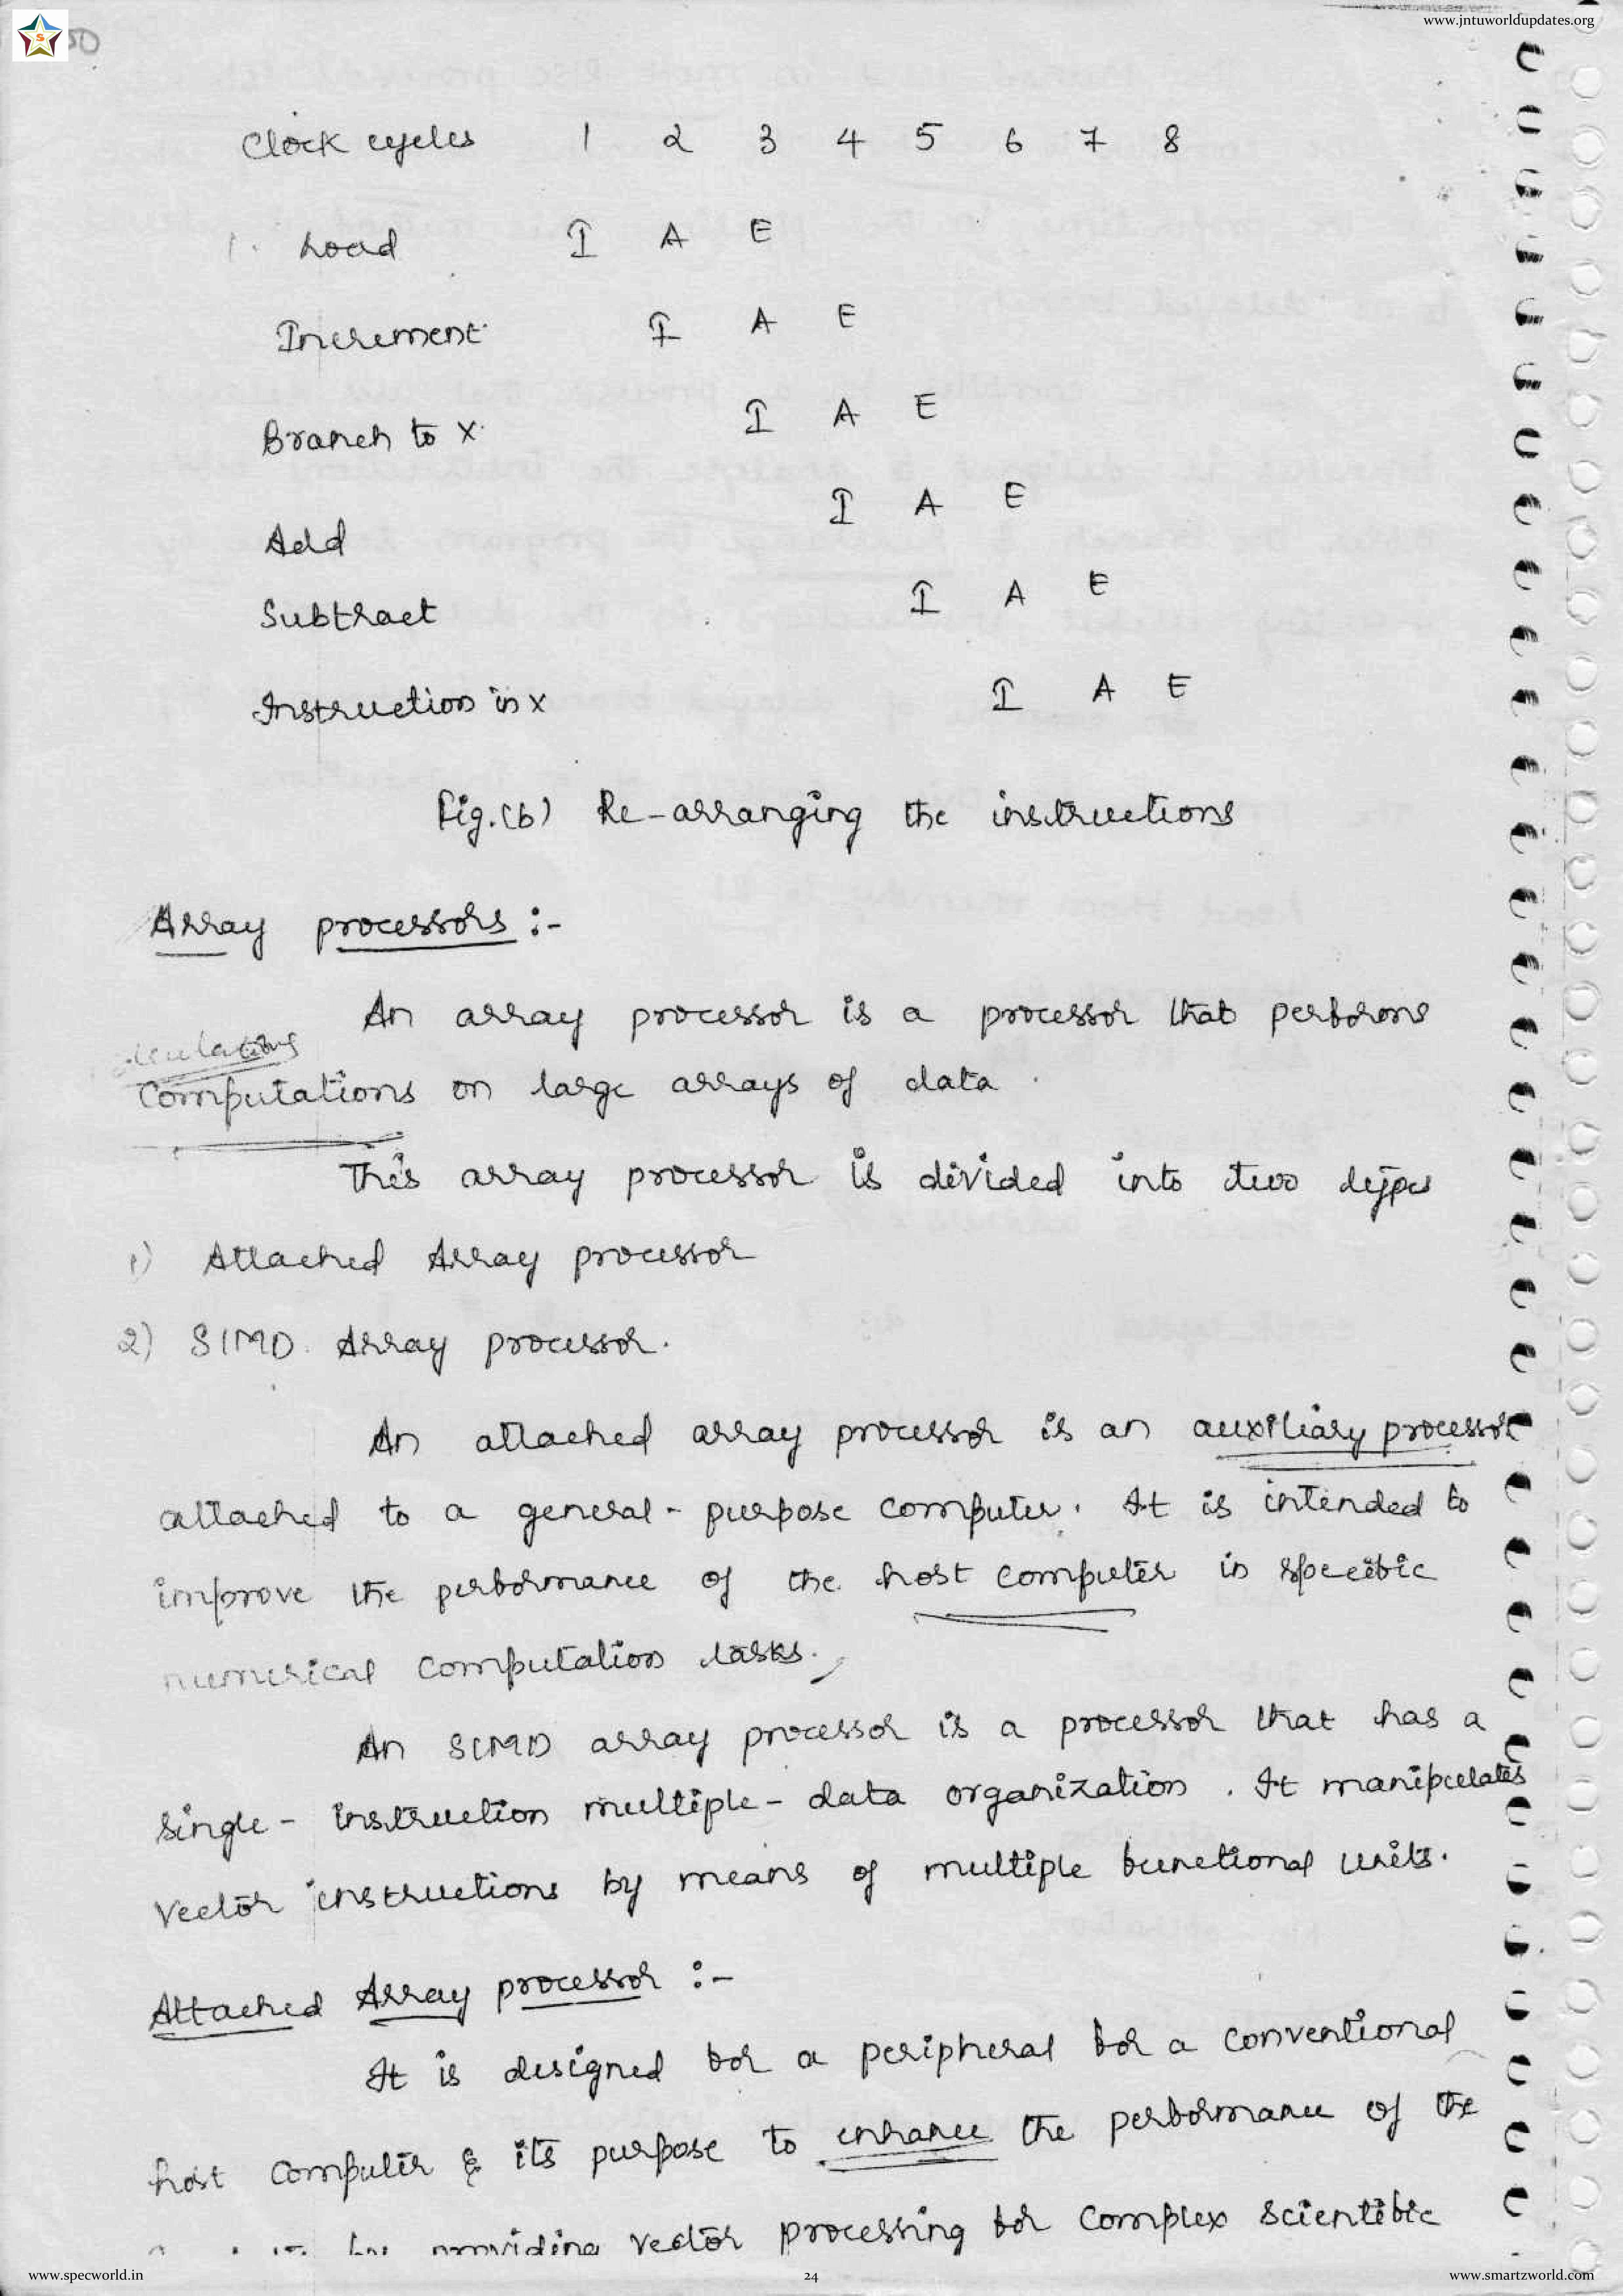 www.jntuworldupdates.org
S
50
Clock cycles 1 2 3 4 5 6 7 8
1. Load I A E
Increment I A E
Branch to X. I A E
Add I A E
Subtract I A E
Instruction in X I A E
Fig.(b) Re-arranging the instructions
Array processors :-
An array processor is a processor that performs
calculations
computations on large arrays of data.
This array processor is divided into two types
1) Attached Array processor
2) SIMD Array processor.
An attached array processor is an auxiliary processor
attached to a general-purpose computer. It is intended to
improve the performance of the host computer in specific
numerical computation tasks.
An SIMD array processor is a processor that has a
single-instruction multiple-data organization. It manipulates
vector instructions by means of multiple functional units.
Attached Array processor :-
It is designed for a peripheral for a conventional
host computer & its purpose to enhance the performance of the
by providing vector processing for complex scientific
www.specworld.in 24 www.smartzworld.com